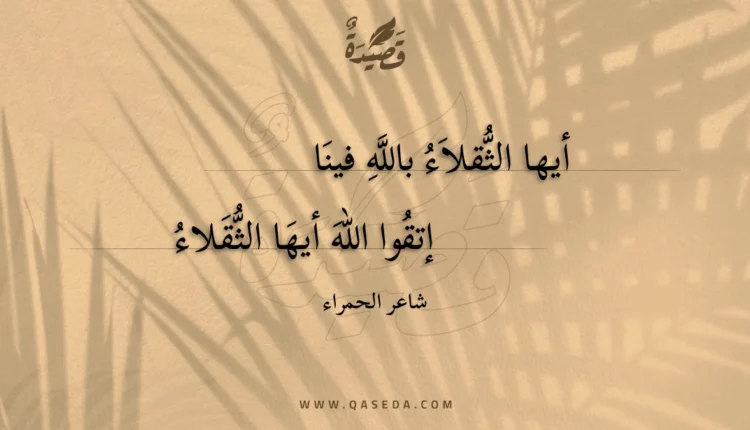 قَصِيدَةٌ
أيها الثُّقلاَءُ باللَّهِ فينَا
إتقُوا اللهَ أيهَا الثُّقَلاءُ
شاعر الحمراء
WWW.QASEDA.COM